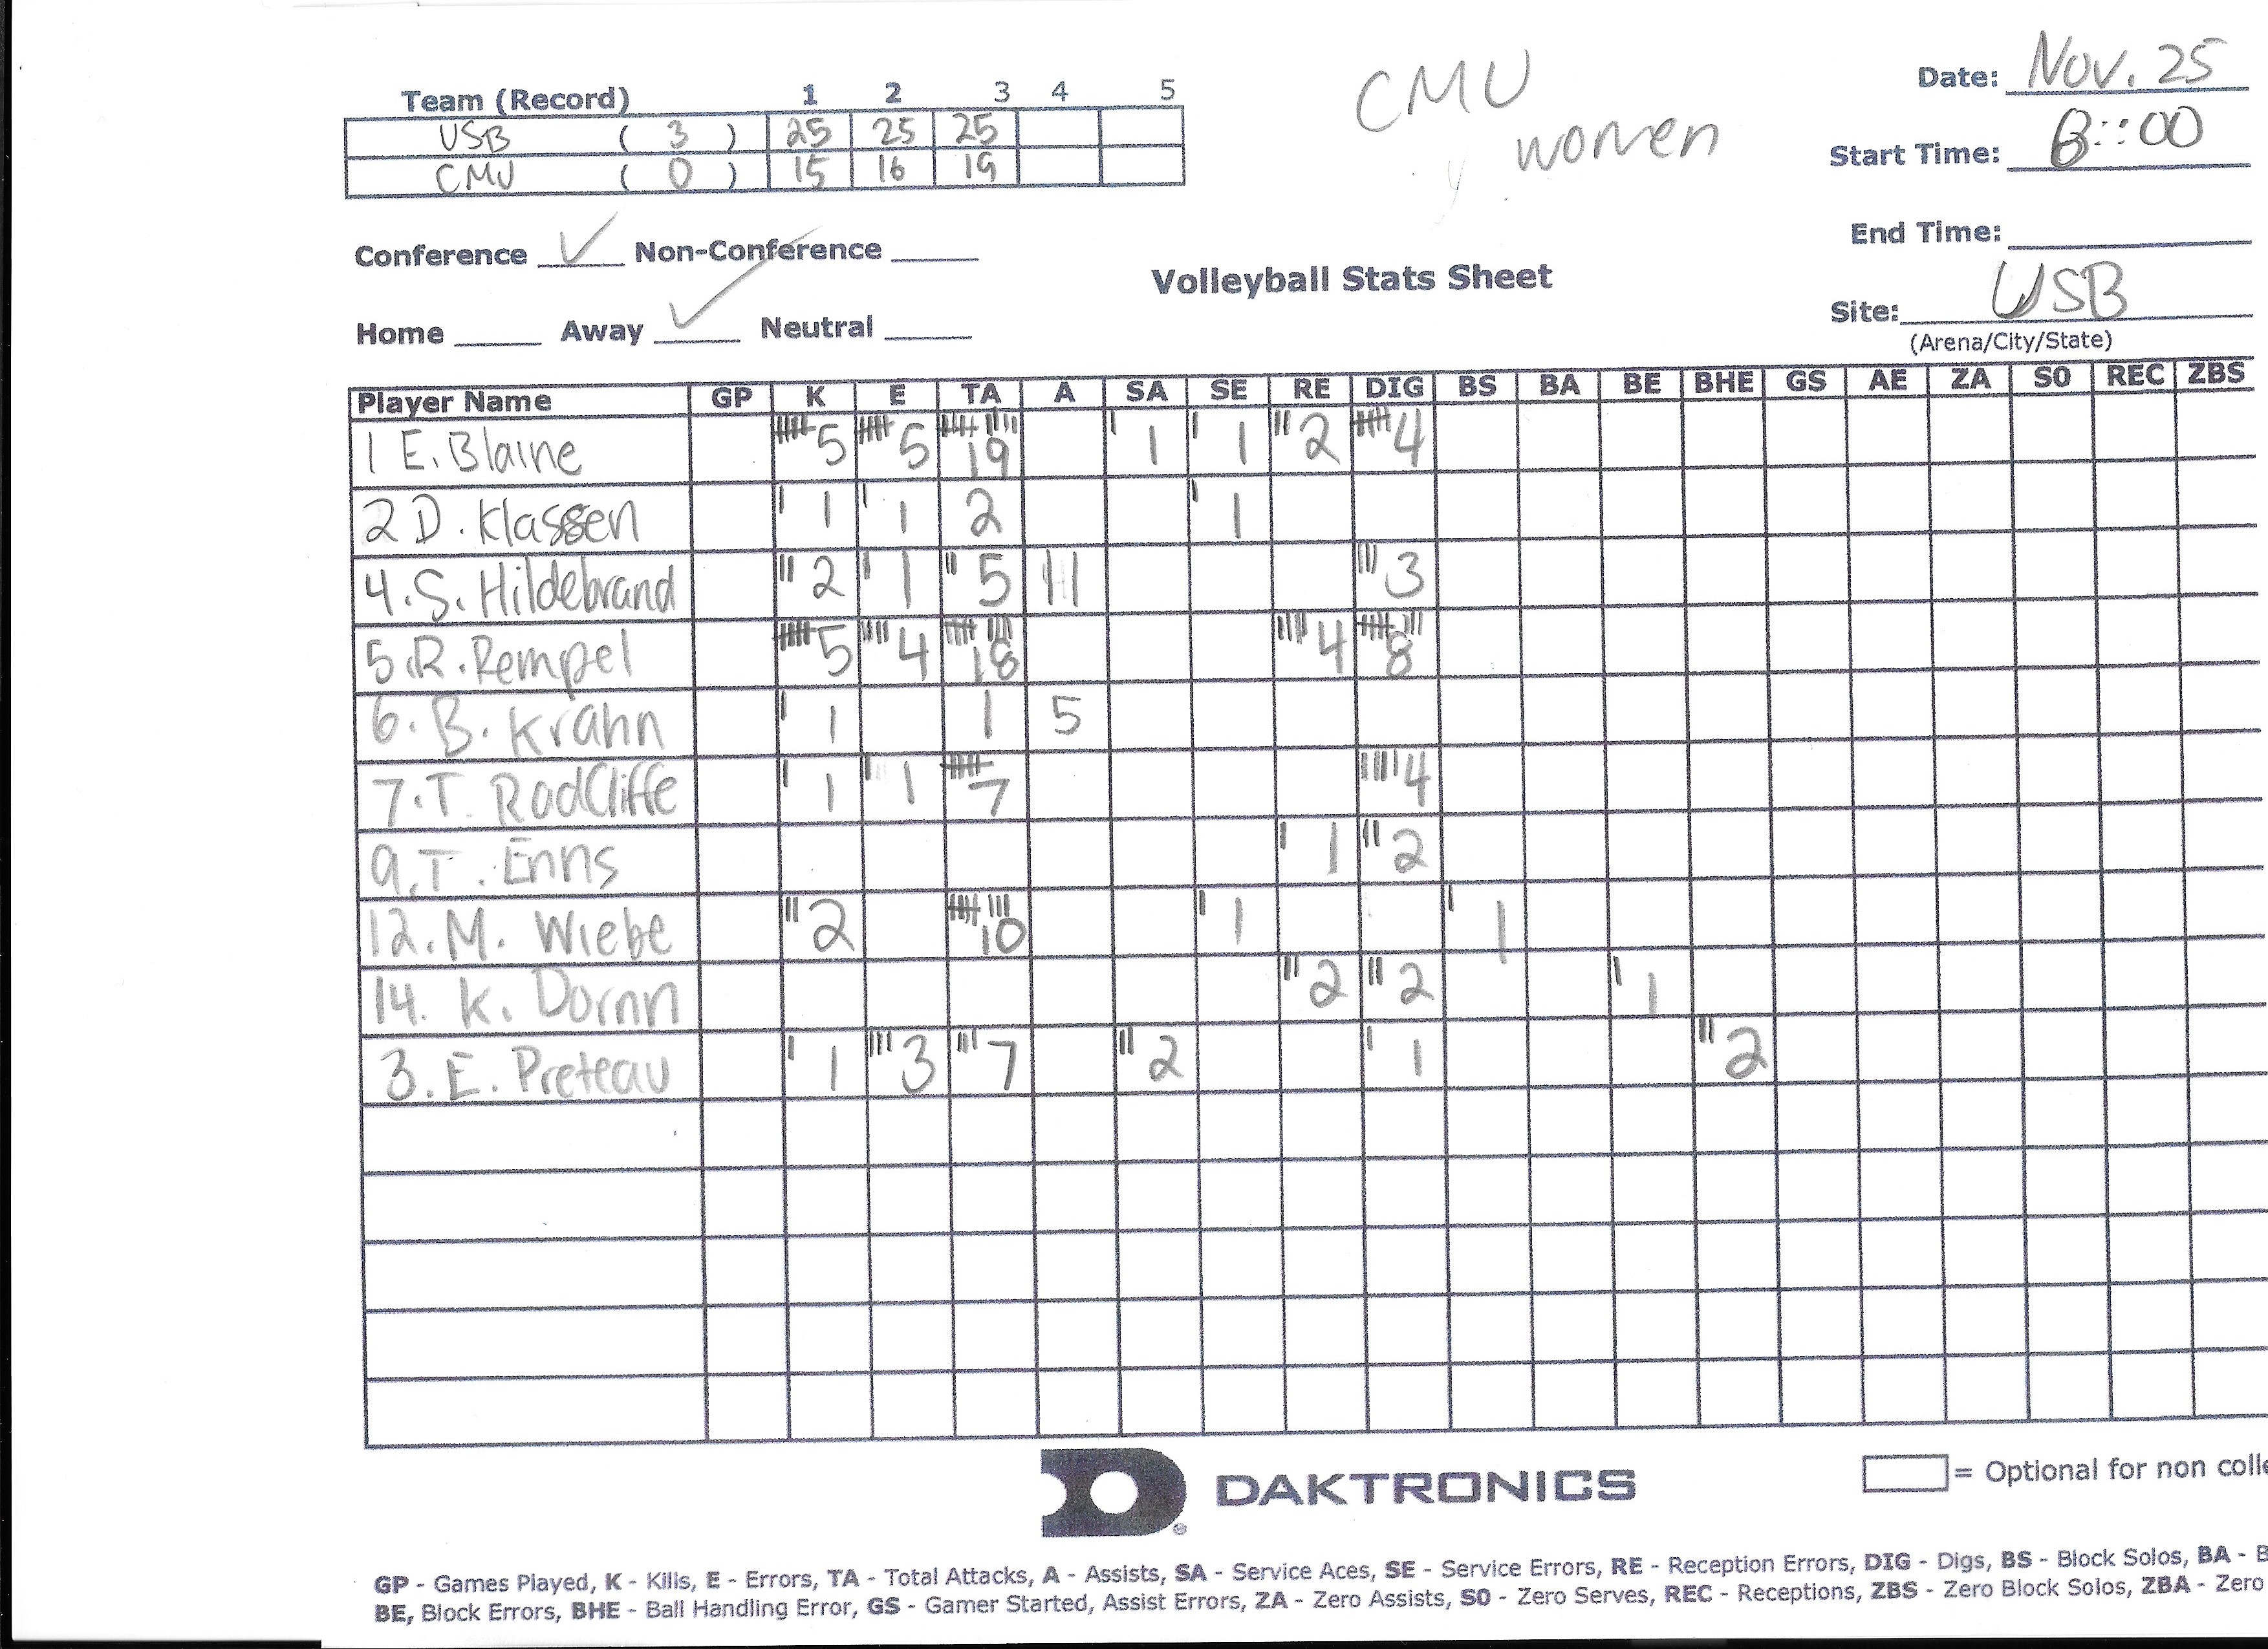 CMU
women
Date: Nov. 25
Start Time: 8::00
End Time:
Site: USB
(Arena/City/State)
Team (Record) 1 2 3 4 5
USB ( 3 ) 25 25 25
CMU ( 0 ) 15 16 19
Conference ✓ Non-Conference
Home Away ✓ Neutral
Volleyball Stats Sheet
Player Name GP K E TA A SA SE RE DIG BS BA BE BHE GS AE ZA SO REC ZBS
1 E. Blaine 5 5 19 1 1 2 4
2 D. Klassen 1 1 2 1
4. S. Hildebrand 2 1 5 11 3
5. R. Rempel 5 4 18 4 8
6. B. Krahn 1 1 5
7. T. RadCliffe 1 1 7 4
9. T. Enns 1 2
12. M. Wiebe 2 10 1 1
14. K. Dornn 2 2 1
3. E. Preteau 1 3 7 2 1 2
DAKTRONICS
= Optional for non colle
GP - Games Played, K - Kills, E - Errors, TA - Total Attacks, A - Assists, SA - Service Aces, SE - Service Errors, RE - Reception Errors, DIG - Digs, BS - Block Solos, BA - B
BE, Block Errors, BHE - Ball Handling Error, GS - Gamer Started, Assist Errors, ZA - Zero Assists, SO - Zero Serves, REC - Receptions, ZBS - Zero Block Solos, ZBA - Zero